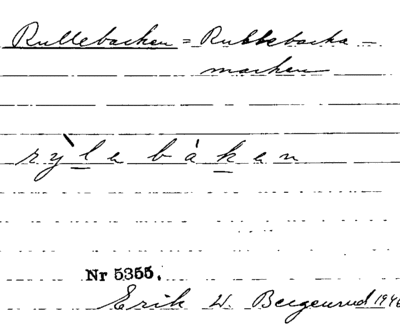 Rullebacken = Rullebacka-
marken
rỳl̲e bàk̲en
Nr 5355.
Erik W. Bergenrud 1946